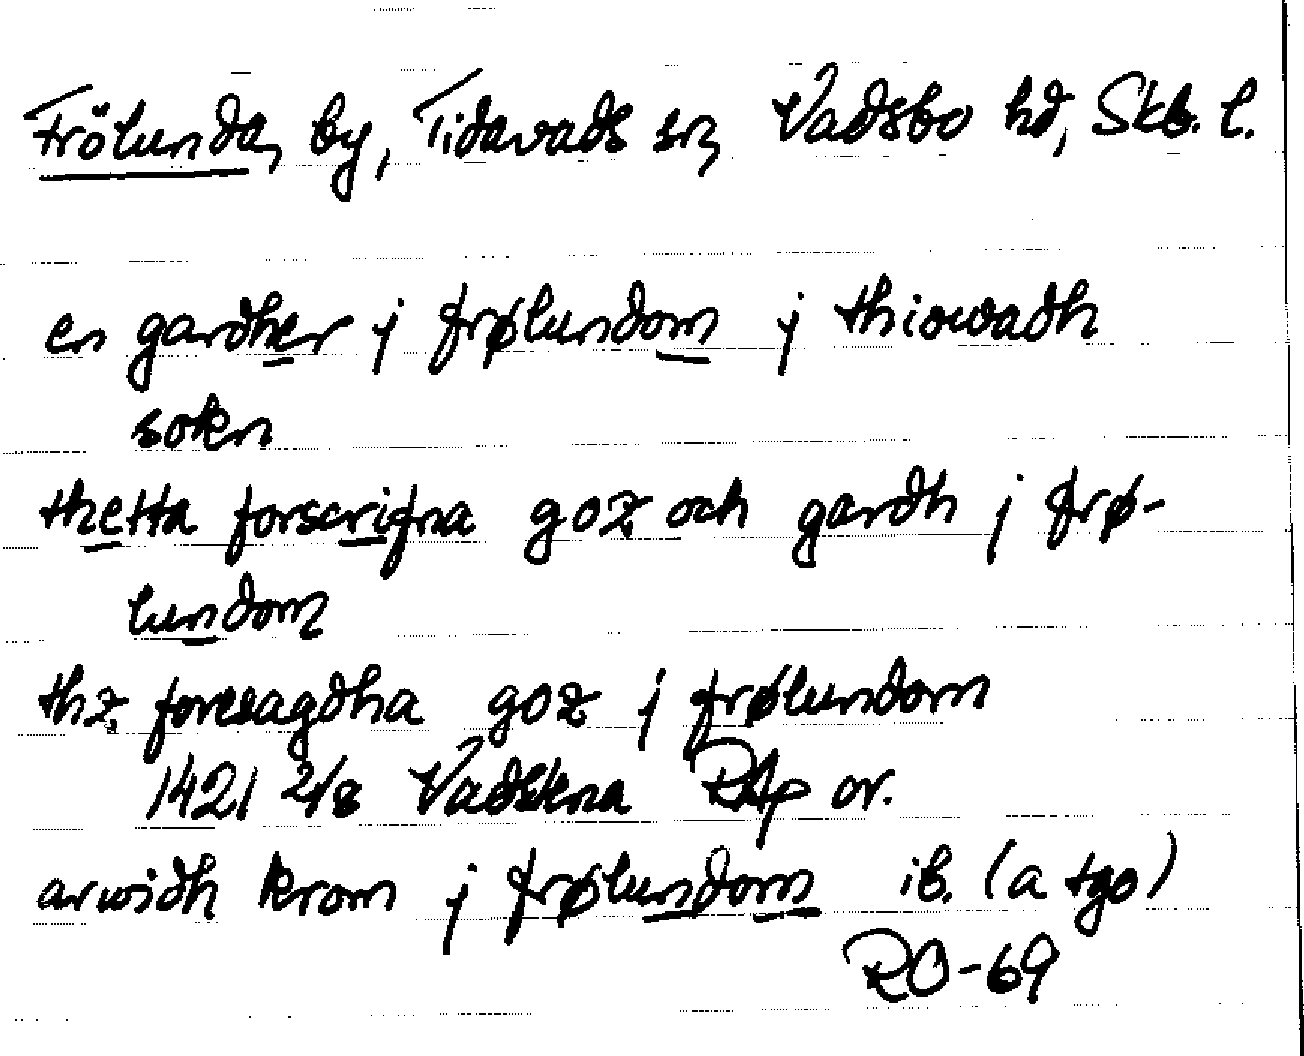 Frölunda, by, Tidavads sn, Vadsbo hd, Skb. l.
en gardher j frølundom j thiowadh
sokn
thetta forscrifna goz och gardh j frø-
lundom
thz foresagdha goz j frølundom
1421 2/8 Vadstena RAp or.
arwidh krom j frølundom ib. (a tgo)
RO-69